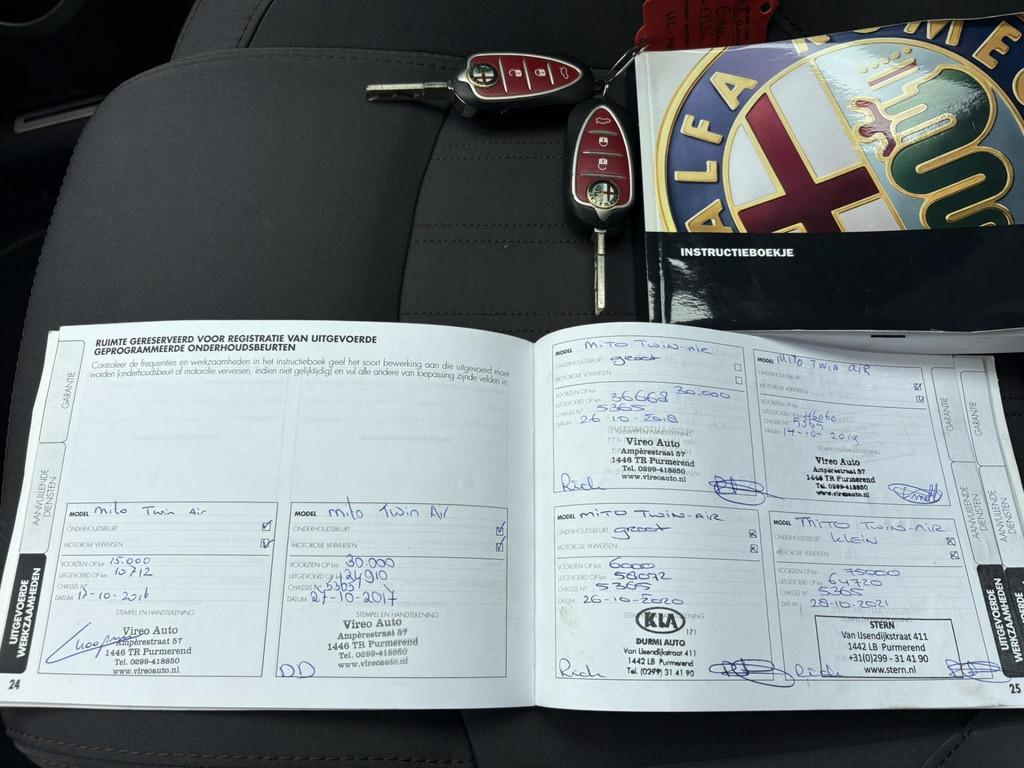 ALFA ROMEO
INSTRUCTIEBOEKJE
RUIMTE GERESERVEERD VOOR REGISTRATIE VAN UITGEVOERDE
GEPROGRAMMEERDE ONDERHOUDSBEURTEN
Controleer de frequenties en werkzaamheden in het instructieboek geef het soort bewerking aan die uitgevoerd moet
worden (onderhoudsbeurt of motorolie verversen, indien niet gelijktijdig) en vul alle andere van toepassing zijnde velden in.
GARANTIE
AANVULLENDE
DIENSTEN
UITGEVOERDE
WERKZAAMHEDEN
MODEL Mito Twin Air
ONDERHOUDSBEURT
MOTOROLIE VERVERSEN
VOORZIEN OP km 15.000
UITGEVOERD OP km 10712
CHASSIS N°
DATUM 13-10-2016
STEMPEL EN HANDTEKENING
Vireo Auto
Ampèrestraat 57
1446 TR Purmerend
Tel. 0299-418850
www.vireoauto.nl
24
MODEL Mito Twin Air
ONDERHOUDSBEURT
MOTOROLIE VERVERSEN
VOORZIEN OP km 30.000
UITGEVOERD OP km 24910
CHASSIS N° 5365
DATUM 27-10-2017
STEMPEL EN HANDTEKENING
Vireo Auto
Ampèrestraat 57
1446 TR Purmerend
Tel. 0299-418850
www.vireoauto.nl
DD
MODEL MiTO TWIN-AIR
ONDERHOUDSBEURT groot
MOTOROLIE VERVERSEN
VOORZIEN OP km 30.000
UITGEVOERD OP km 36668
CHASSIS N° 5365
DATUM 26-10-2018
Vireo Auto
Ampèrestraat 57
1446 TR Purmerend
Tel. 0299-418850
www.vireoauto.nl
Rich
MODEL Mito Twin AIR
ONDERHOUDSBEURT
MOTOROLIE VERVERSEN
VOORZIEN OP km
UITGEVOERD OP km 46060
CHASSIS N° 5365
DATUM 14-10-2019
STEMPEL EN HANDTEKENING
Vireo Auto
Ampèrestraat 57
1446 TR Purmerend
Tel. 0299-418850
www.vireoauto.nl
MODEL MITO TWIN-AIR
ONDERHOUDSBEURT groot
MOTOROLIE VERVERSEN
VOORZIEN OP km 6000
UITGEVOERD OP km 56072
CHASSIS N° 5365
DATUM 26-10-2020
KIA
171
DURMI AUTO
Van IJsendijkstraat 411
1442 LB Purmerend
Tel. (0299) 31 41 90
Rich
MODEL MITO TWIN-AIR
ONDERHOUDSBEURT KLEIN
MOTOROLIE VERVERSEN
VOORZIEN OP km 75000
UITGEVOERD OP km 64720
CHASSIS N° 5365
DATUM 28-10-2021
STEMPEL EN HANDTEKENING
STERN
Van IJsendijkstraat 411
1442 LB Purmerend
+31(0)299 - 31 41 90
www.stern.nl
Rich
GARANTIE
AANVULLENDE
DIENSTEN
UITGEVOERDE
WERKZAAMHEDEN
25